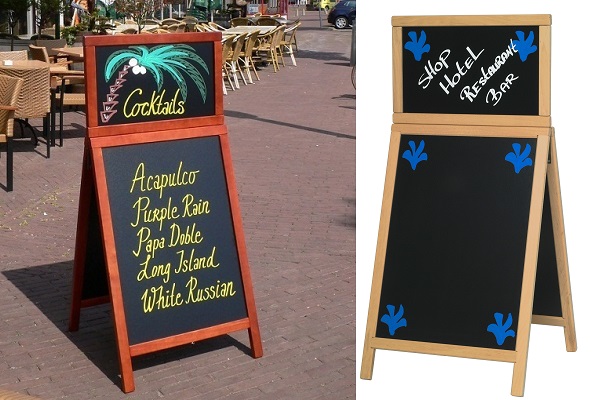 Cocktails
Acapulco
Purple Rain
Papa Doble
Long Island
White Russian
SHOP
HOTEL
RESTAURANT
BAR